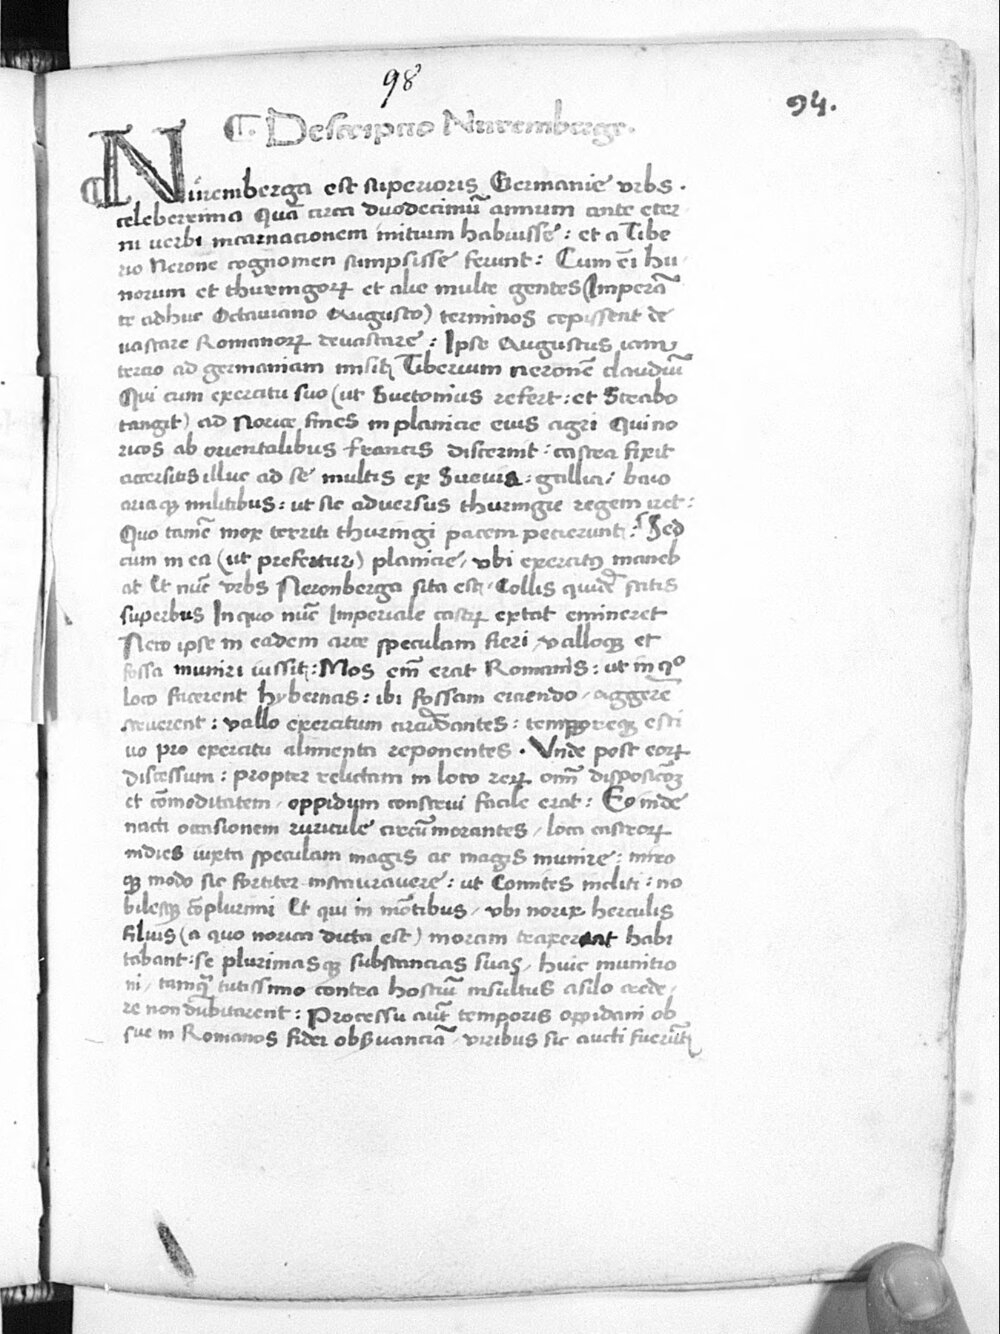 98
94.
¶. Descriptio Nurembergę.
Nuremberga est superioris Germanie vrbs.
celeberrima Quā circa duodecimū annum ante eter
ni verbi incarnacionem initium habuisse: et a Tibe
rio Nerone cognomen sumpsisse ferunt: Cum eī hu
norum et thuringorꝝ et alie multe gentes (Imperā
te adhuc Octauiano Augusto) terminos cepissent de
uastare Romanorꝝ deuastare: Ipse Augustus iam
tercio ad germaniam misit Tiberium neronē claudiū
Qui cum exercitu suo (ut Suetonius refert: et Strabo
tangit) ad Norice fines in planicie eius agri Qui no
ricos ab orientalibus francis discernit: castra fixit
accersitis illuc ad se multis ex Sueuia: gallia: baio
ariaqꝫ militibus: ut sic aduersus thuringie regem iret:
Quo tamē mox territi thuringi pacem pecierunt: Sed
cum in ea (ut prefertur) planicie, vbi exercitꝰ maneb
at Et nūc vrbs Neronberga sita est, Collis quidē satis
superbus In quo nūc Imperiale castrꝝ extat emineret
Nero ipse in eadem arce speculam fieri, valloqꝫ et
fossa muniri iussit: Mos em̄ erat Romanis: ut in qͦ
loco facerent hybernas: ibi fossam ciendo, aggerē
struerent: vallo exercitum circūdantes: temporeqꝫ esti
uo pro exercitu alimenta reponentes. Vnde post eorꝝ
discessum: propter relictam in loco rerꝝ om̄ disposicōꝫ
et cōmoditatem, oppidum construi facile erat: Eo inde
nacti occasionem ruricule circūmorantes, loca castrorꝝ
indies iuxta speculam magis ac magis munire: miro
qꝫ modo sic fortiter instaurauere: ut Comites incliti: no
bilesqꝫ cōplurimi Et qui in mōtibus, vbi norix herculis
filius (a quo norica dicta est) moram traxerant habi
tabant: se plurimasqꝫ substancias suas, huic munitio
ni, tamqꝫ tutissimo contra hostiū insultus asilo crede,
re non dubitarent: Processu aūt temporis oppidani ob
sue in Romanos fidei obſuanciā, viribus sic aucti fuerūt